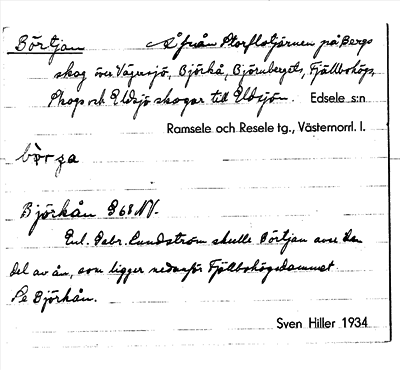 Börtjan Å från Storflotjärnen på Bergs
skog över Vägersjö, Björkå, Björnberget, Fjällbohögs,
Skogs och Eldsjö skogar till Eldsjön. Edsele s:n
Ramsele och Resele tg., Västernorrl. l.
Björkån 968 NV.
Enl. Gabr. Lundström skulle Börtjan avse den
del av ån, som ligger nedanför Fjällbohögsdammet
Se Björkån.
Sven Hiller 1934